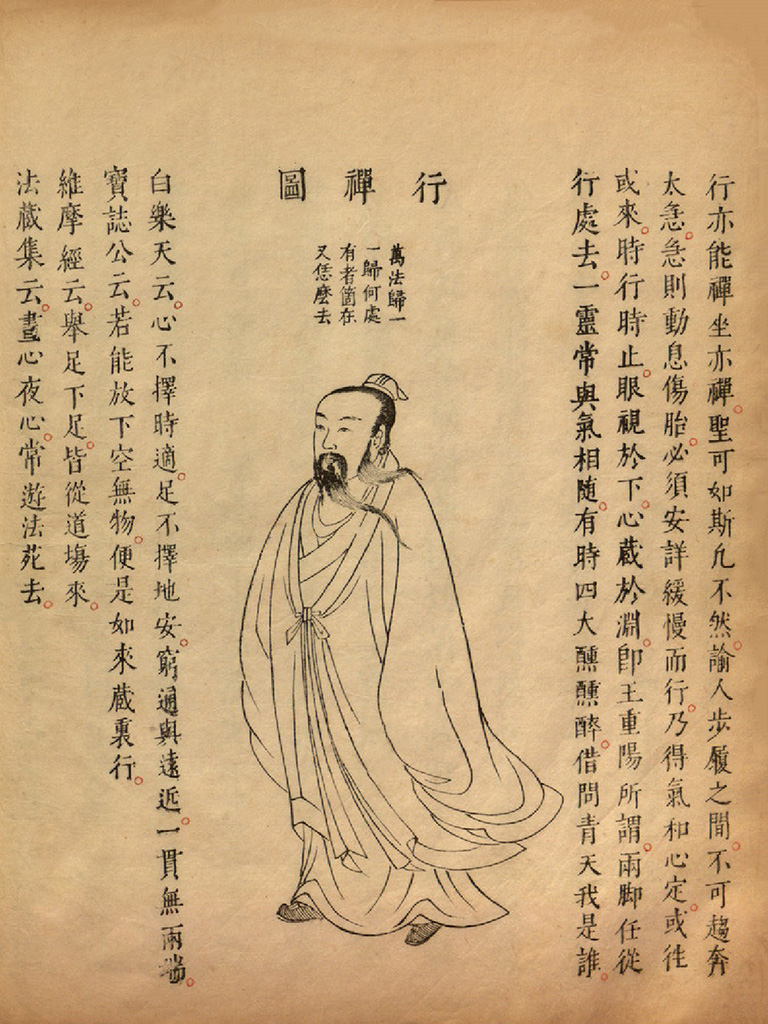 行亦能禪坐亦禪。聖可如斯凡不然。論人步履之間。不可趨奔
太急。急則動息傷胎。必須安詳緩慢而行。乃得氣和心定。或往
或來。時行時止。眼視於下。心藏於淵。即王重陽所謂。兩脚任從
行處去。一靈常與氣相隨。有時四大醺醺醉。借問青天我是誰。
行禪圖
萬法歸一
一歸何處
有者箇在
又恁麼去
白樂天云。心不擇時適。足不擇地安。窮通與遠近。一貫無兩端。
寶誌公云。若能放下空無物。便是如來藏裏行。
維摩經云。舉足下足。皆從道場來。
法藏集云。晝心夜心。常遊法苑去。